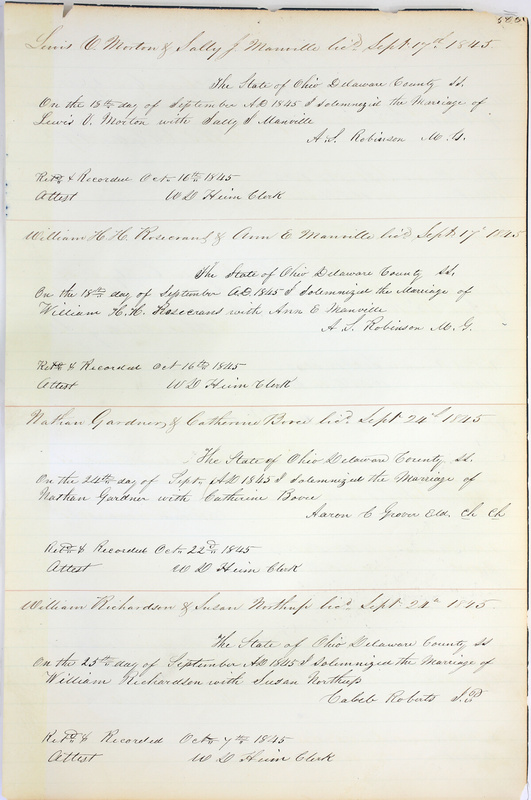 Lewis V. Morton & Sally J. Manville lic'd Sept. 17th 1845.
The State of Ohio Delaware County ss.
On the 18th day of September A.D. 1845 I solemnized the Marriage of
Lewis V. Morton with Sally J. Manville
A. S. Robinson M. G.
Ret'd & Recorded Oct 16th 1845
Attest W D Heim Clerk
William H. H. Rosecrans & Ann E. Manville lic'd Sept. 17th 1845
The State of Ohio Delaware County ss.
On the 18th day of September A.D. 1845 I solemnized the Marriage of
William H. H. Rosecrans with Ann E Manville
A. S. Robinson M. G.
Ret'd & Recorded Oct 16th 1845
Attest W D Heim Clerk
Nathan Gardner & Catherine lic'd Sept 24th 1845
The State of Ohio Delaware County ss.
On the 24th day of Sept. A.D 1845 I solemnized the Marriage of
Nathan Gardner with Catherine
Aaron C Grove Eld. Ch Ch
Ret'd & Recorded Oct 22d 1845
Attest W D Heim Clerk
William Richardson & Susan Northup lic'd Sept 24th 1845.
The State of Ohio Delaware County ss
On the 25th day of September A.D 1845 I solemnized the Marriage of
William Richardson with Susan Northup
Caleb Roberts J.P
Ret'd & Recorded Oct 7th 1845
Attest W D Heim Clerk